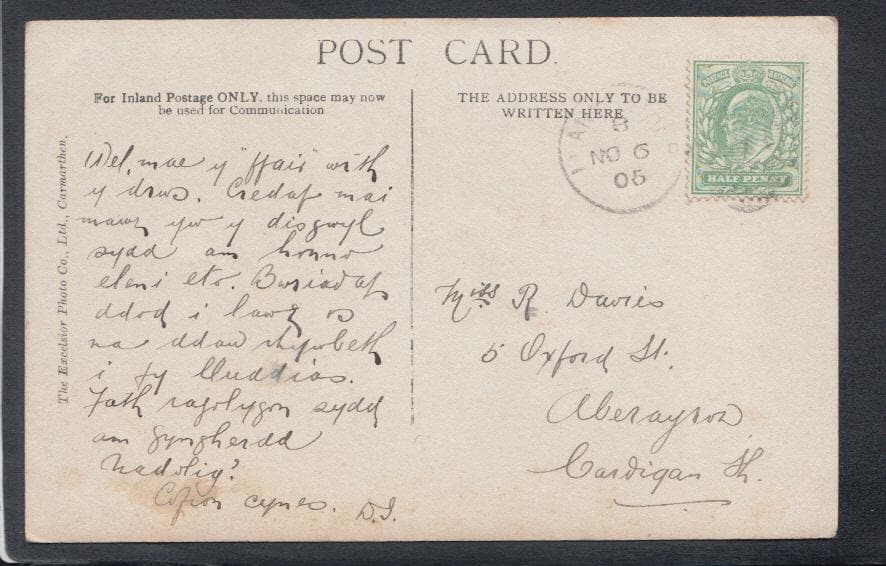 POST CARD.
For Inland Postage ONLY, this space may now
be used for Communication
THE ADDRESS ONLY TO BE
WRITTEN HERE
The Excelsior Photo Co., Ltd., Carmarthen.
Wel, mae y "ffair" wrth
y drws. Credaf mai
mawr yw y disgwyl
sydd am honno
eleni eto. Bwriadaf
ddod i lawr os
na ddaw rhywbeth
i fy lluddias.
Fath ragolygon sydd
am gyngherdd
Nadolig?
Cofion cynes. D.J.
B
NO 6
05
POSTAGE REVENUE
HALF PENNY
Miss R. Davies
5 Oxford St.
Aberayron
Cardigan Sh.